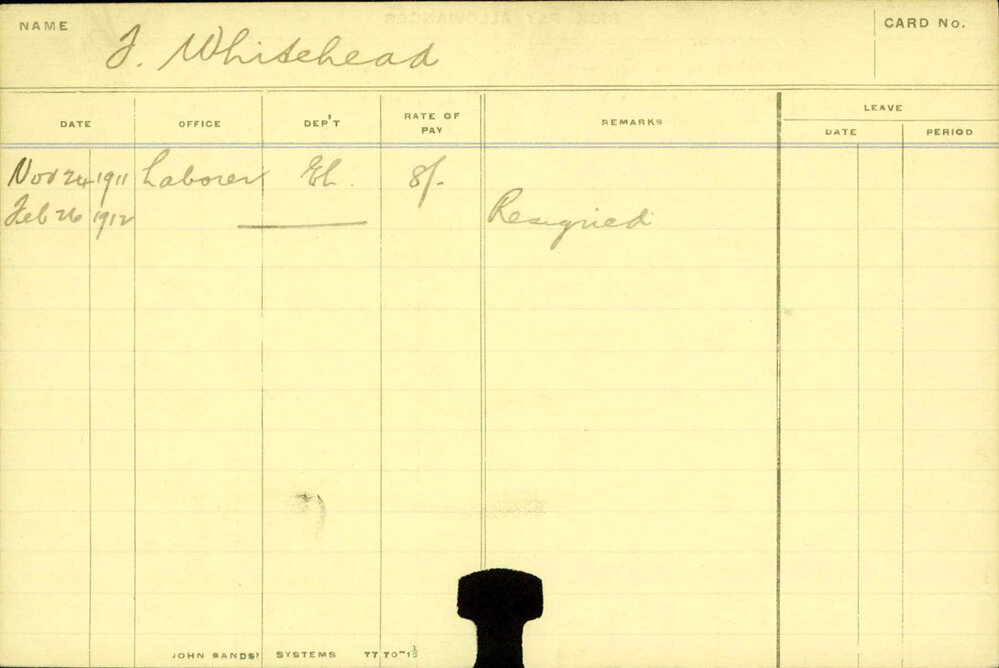 NAME J. Whitehead CARD NO.
DATE OFFICE DEP'T RATE OF PAY REMARKS LEAVE
DATE PERIOD
Nov 24 1911 Laborer EL. 8/-
Feb 26 1912 Resigned
JOHN SANDS' SYSTEMS